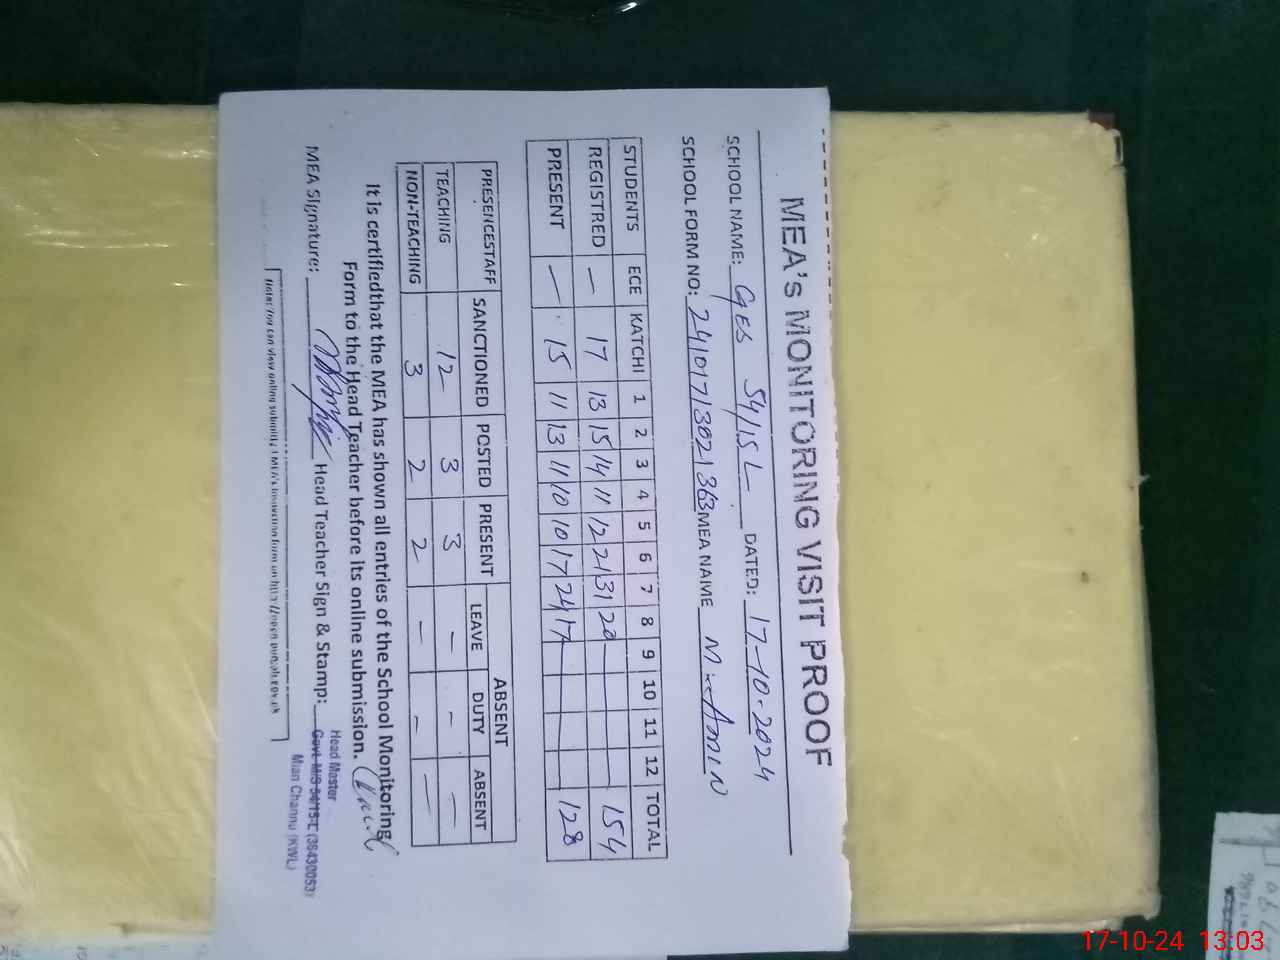 MEA's MONITORING VISIT PROOF
SCHOOL NAME: GES 54/15 L DATED: 17-10-2024
SCHOOL FORM NO: 24101713021363 MEA NAME M. Amin
STUDENTS ECE KATCHI 1 2 3 4 5 6 7 8 9 10 11 12 TOTAL
REGISTRED — 17 13 15 14 11 12 21 31 20 154
PRESENT — 15 11 13 11 10 10 17 24 17 128
PRESENCESTAFF SANCTIONED POSTED PRESENT ABSENT
LEAVE DUTY ABSENT
TEACHING 12 3 3 — - —
NON-TEACHING 3 2 2 — - —
It is certifiedthat the MEA has shown all entries of the School Monitoring
Form to the Head Teacher before its online submission.
MEA Signature: Head Teacher Sign & Stamp:
Head Master
Govt. M/S 54/15-L (36430053)
Mian Channu (KWL)
Note: You can view online submitted MEA's Inspection form on http://open.punjab.gov.pk
17-10-24 13:03